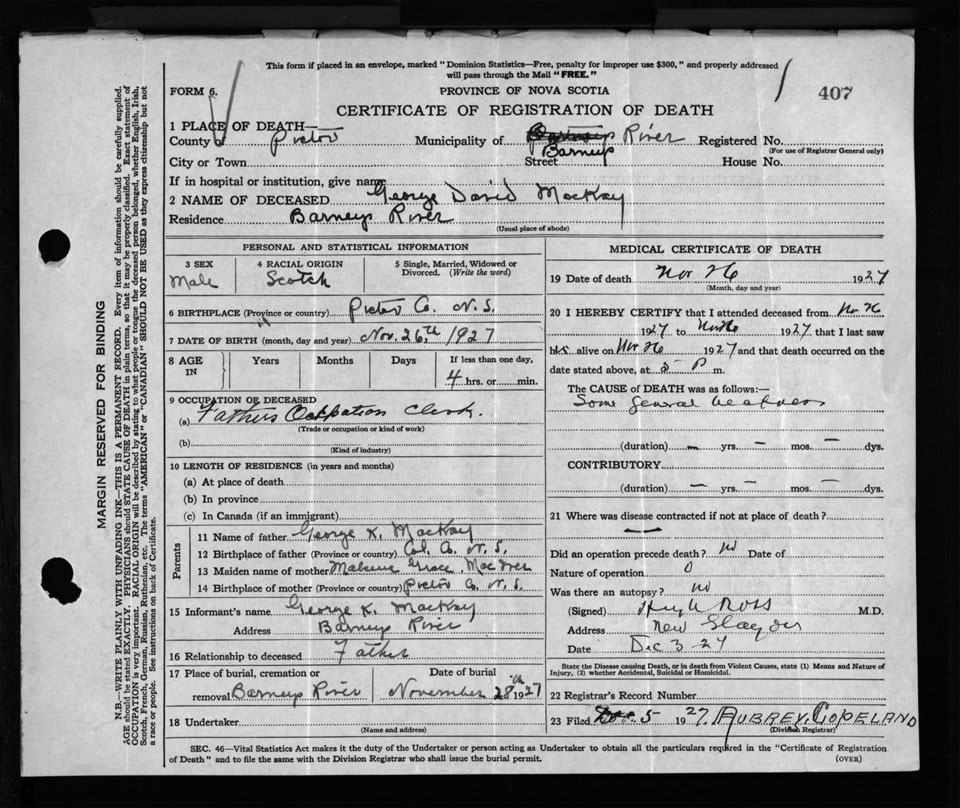 This form if placed in an envelope, marked "Dominion Statistics—Free, penalty for improper use $300," and properly addressed
will pass through the Mail "FREE."
FORM 6.
PROVINCE OF NOVA SCOTIA
407
CERTIFICATE OF REGISTRATION OF DEATH
1 PLACE OF DEATH—
County of Pictou Municipality of Barneys River Registered No.
(For use of Registrar General only)
City or Town Street House No.
If in hospital or institution, give name
2 NAME OF DECEASED George David MacKay
Residence Barneys River
(Usual place of abode)
PERSONAL AND STATISTICAL INFORMATION
3 SEX 4 RACIAL ORIGIN 5 Single, Married, Widowed or
Divorced. (Write the word)
Male Scotch
6 BIRTHPLACE (Province or country) Pictou Co. N.S.
7 DATE OF BIRTH (month, day and year) Nov. 26th, 1927
8 AGE IN Years Months Days If less than one day,
4 hrs. or min.
9 OCCUPATION OF DECEASED
(a) Fathers Occupation Clerk.
(Trade or occupation or kind of work)
(b)
(Kind of industry)
10 LENGTH OF RESIDENCE (in years and months)
(a) At place of death
(b) In province
(c) In Canada (if an immigrant)
Parents
11 Name of father George K. MacKay
12 Birthplace of father (Province or country) Co. N.S.
13 Maiden name of mother Grace
14 Birthplace of mother (Province or country) Pictou Co. N.S.
15 Informant's name George K. MacKay
Address Barneys River
16 Relationship to deceased Father
17 Place of burial, cremation or Date of burial
removal Barneys River November 28th 1927
18 Undertaker
(Name and address)
MEDICAL CERTIFICATE OF DEATH
19 Date of death Nov 26 1927
(Month, day and year)
20 I HEREBY CERTIFY that I attended deceased from Nov 26
1927 to Nov 26 1927, that I last saw
him alive on Nov 26 1927 and that death occurred on the
date stated above, at 5 P m.
The CAUSE of DEATH was as follows:—
Some general weakness
(duration) — yrs. — mos. — dys.
CONTRIBUTORY
(duration) — yrs. — mos. — dys.
21 Where was disease contracted if not at place of death?
—
Did an operation precede death? no Date of
Nature of operation 0
Was there an autopsy? no
(Signed) Hugh Ross M.D.
Address New
Date Dec 3 27
State the Disease causing Death, or in death from Violent Causes, state (1) Means and Nature of
Injury, (2) whether Accidental, Suicidal or Homicidal.
22 Registrar's Record Number
23 Filed Dec. 5 1927. AUBREY COPELAND
(Division Registrar)
SEC. 46—Vital Statistics Act makes it the duty of the Undertaker or person acting as Undertaker to obtain all the particulars required in the "Certificate of Registration
of Death" and to file the same with the Division Registrar who shall issue the burial permit.
(OVER)
MARGIN RESERVED FOR BINDING
N.B.—WRITE PLAINLY WITH UNFADING INK—THIS IS A PERMANENT RECORD. Every item of information should be carefully supplied.
AGE should be stated EXACTLY. PHYSICIANS should STATE CAUSE OF DEATH in plain terms, so that it may be properly classified. Exact statement of
OCCUPATION is very important. RACIAL ORIGIN will be described by stating to what people or tongue the deceased person belonged, whether English, Irish,
Scotch, French, German, Russian, Ruthenian, etc. The terms "AMERICAN" or "CANADIAN" SHOULD NOT BE USED as they express citizenship but not
a race or people. See instructions on back of Certificate.